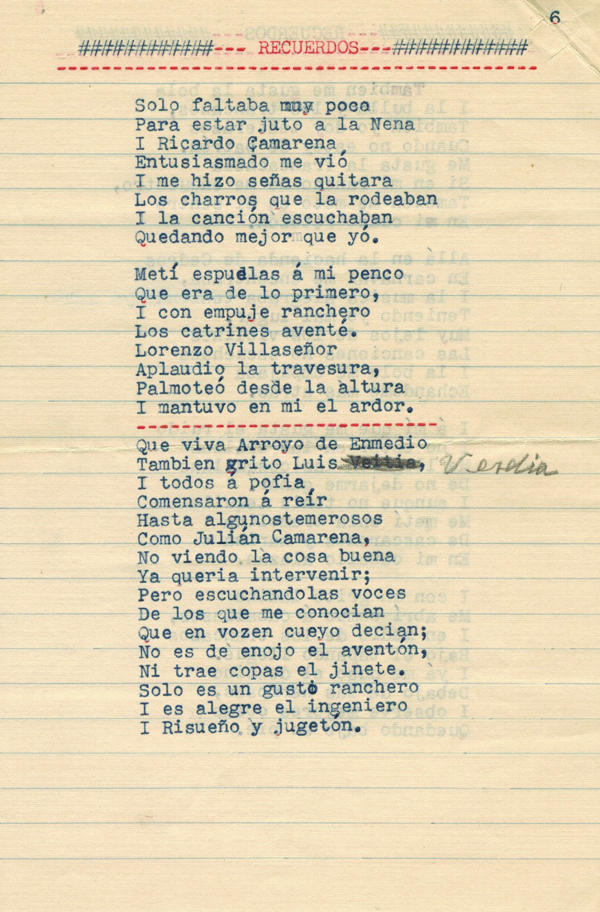 6
############--- RECUERDOS---############
Solo faltaba muy poco
Para estar juto a la Nena
I Ricardo Camarena
Entusiasmado me vió
I me hizo señas quitara
Los charros que la rodeaban
I la canción escuchaban
Quedando mejor que yó.
Metí espuelas á mi penco
Que era de lo primero,
I con empuje ranchero
Los catrines aventé.
Lorenzo Villaseñor
Aplaudio la travesura,
Palmoteó desde la altura
I mantuvo en mi el ardor.
---------------------------
Que viva Arroyo de Enmedio
Tambien grito Luis Veitia, Verdia
I todos á pofia,
Comensaron á reír
Hasta algunostemerosos
Como Julián Camarena,
No viendo la cosa buena
Ya queria intervenir;
Pero escuchandolas voces
De los que me conocian
Que en vozen cueyo decian;
No es de enojo el aventón,
Ni trae copas el jinete.
Solo es un gusto ranchero
I es alegre el ingeniero
I Risueño y jugetón.